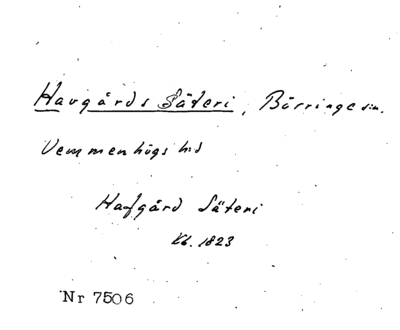 Havgårds Säteri, Börringe sn.
Vemmenhögs hd
Hafgård Säteri
Kb. 1823
Nr 7506